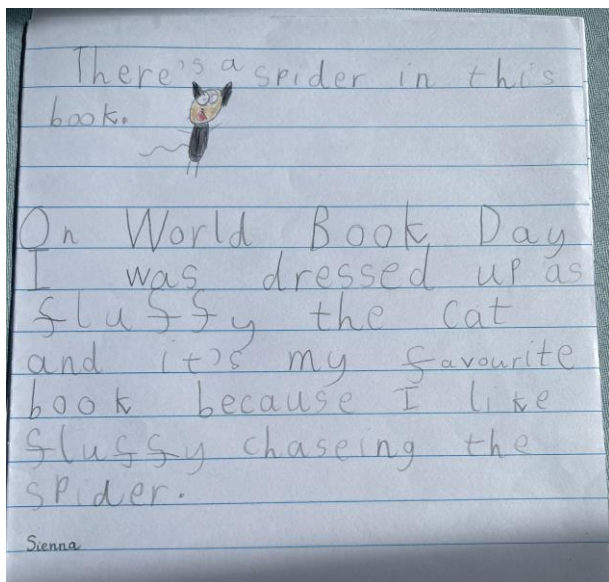 There's a spider in this
book.
On World Book Day
I was dressed up as
fluffy the cat
and it's my favourite
book because I like
fluffy chaseing the
spider.
Sienna